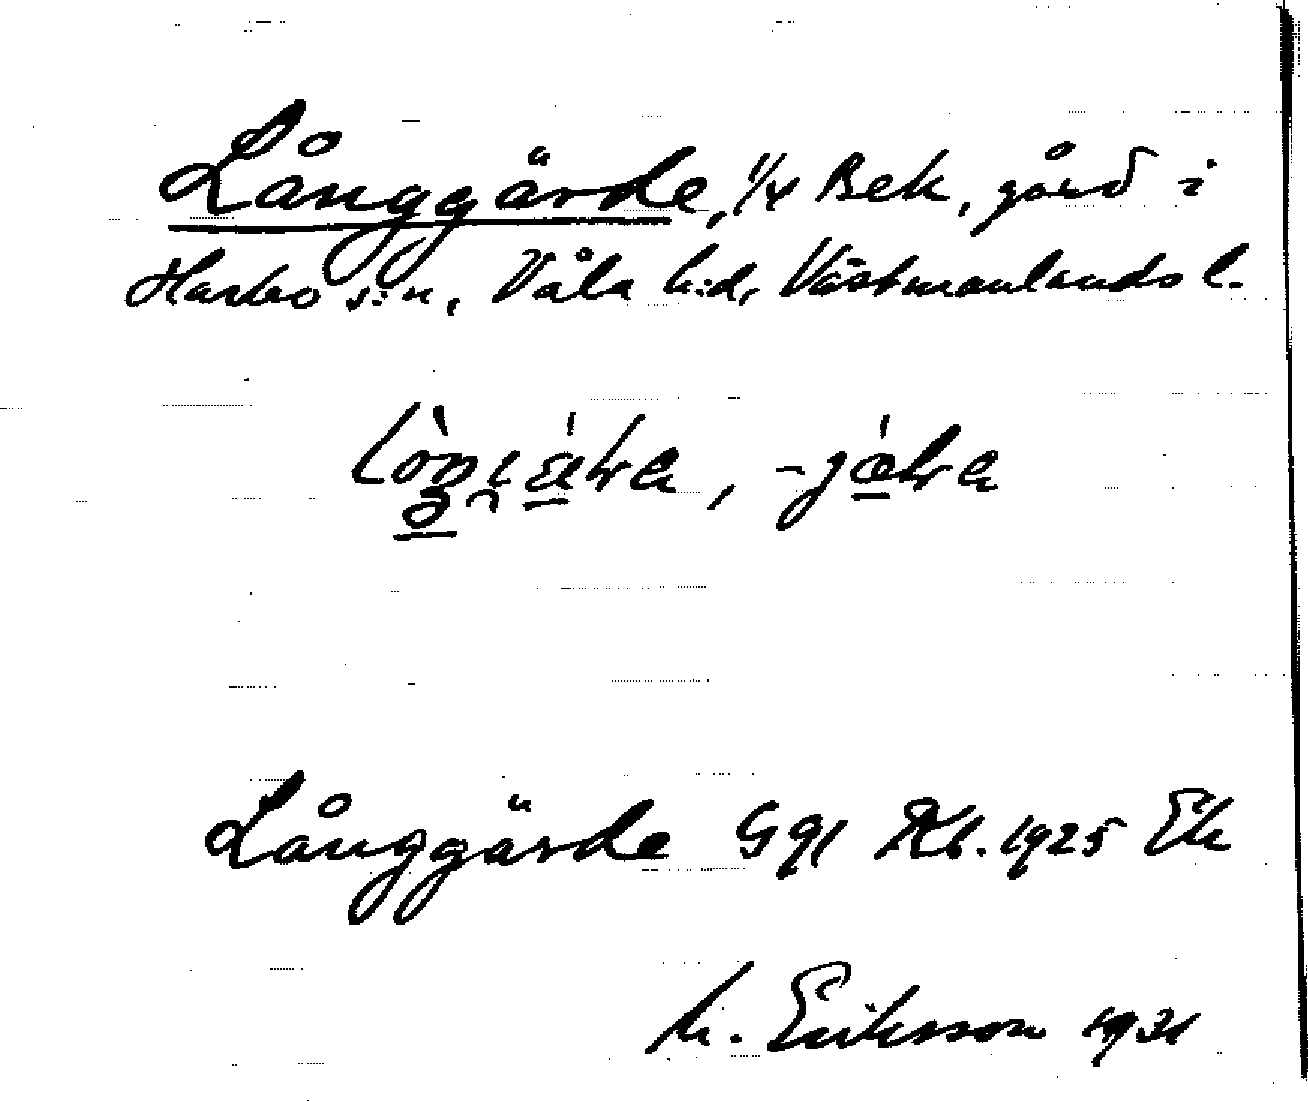 Långgärde, 1/4 Bek, gård i
Harbo s:n, Våla h:d, Västmanlands l.
Långgärde Ggl Rkb. 1925 Ek
M. Eriksson 1931